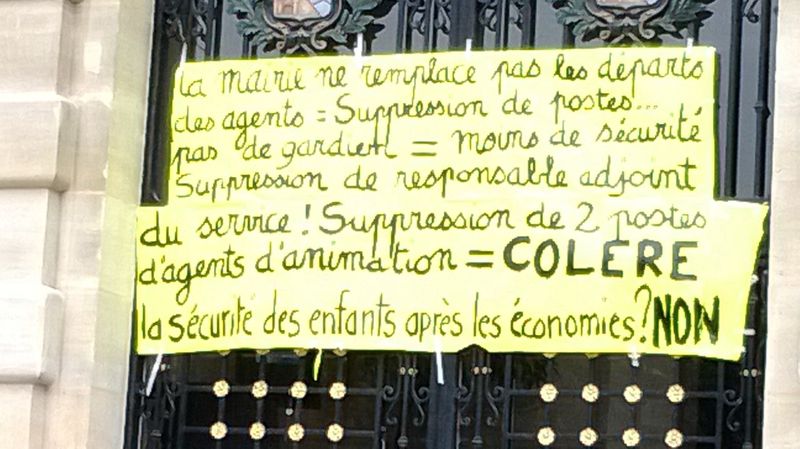 La mairie ne remplace pas les départs
des agents = Suppression de postes...
pas de gardien = moins de sécurité
Suppression de responsable adjoint
du service ! Suppression de 2 postes
d'agents d'animation = COLERE
la sécurité des enfants après les économies ? NON